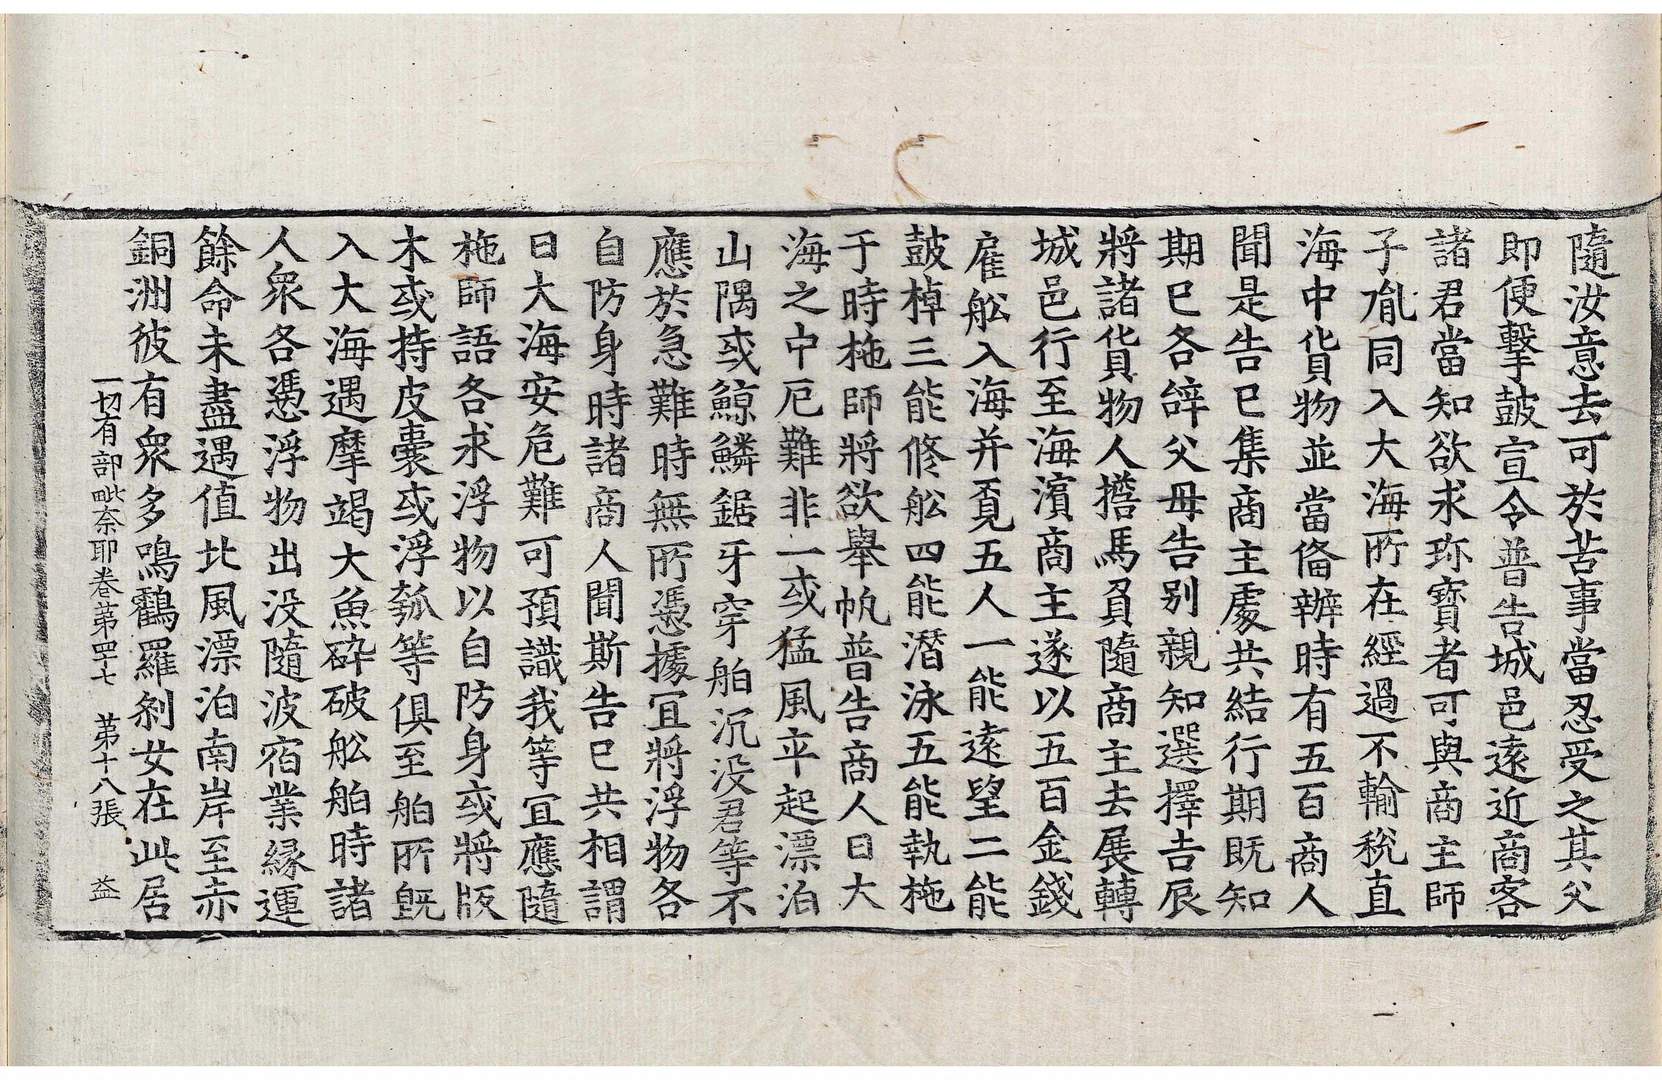 隨汝意去可於苦事當忍受之其父
即便擊鼓宣令普告城邑遠近商客
諸君當知欲求珎寶者可與商主師
子胤同入大海所在經過不輸稅直
海中貨物並當俻辦時有五百商人
聞是告已集商主處共結行期既知
期已各辝父母告別親知選擇吉辰
將諸貨物人擔馬負隨商主去展轉
城邑行至海濱商主遂以五百金錢
雇舩入海并覓五人一能遠望二能
鼓棹三能修舩四能潛泳五能執拖
于時拖師將欲舉帆普告商人曰大
海之中厄難非一或猛風卒起漂泊
山隅或鯨鱗鋸牙穿舶沉没君等不
應於急難時無所憑據冝將浮物各
自防身時諸商人聞斯告已共相謂
曰大海安危難可預識我等冝應隨
拖師語各求浮物以自防身或將版
木或持皮囊或浮瓠等俱至舶所旣
入大海遇摩竭大魚碎破舩舶時諸
人衆各憑浮物出没隨波宿業緣運
餘命未盡遇值北風漂泊南岸至赤
銅洲彼有衆多鳴鸖羅剎女在此居
一切有部毗奈耶卷苐四十七　苐十八張　益